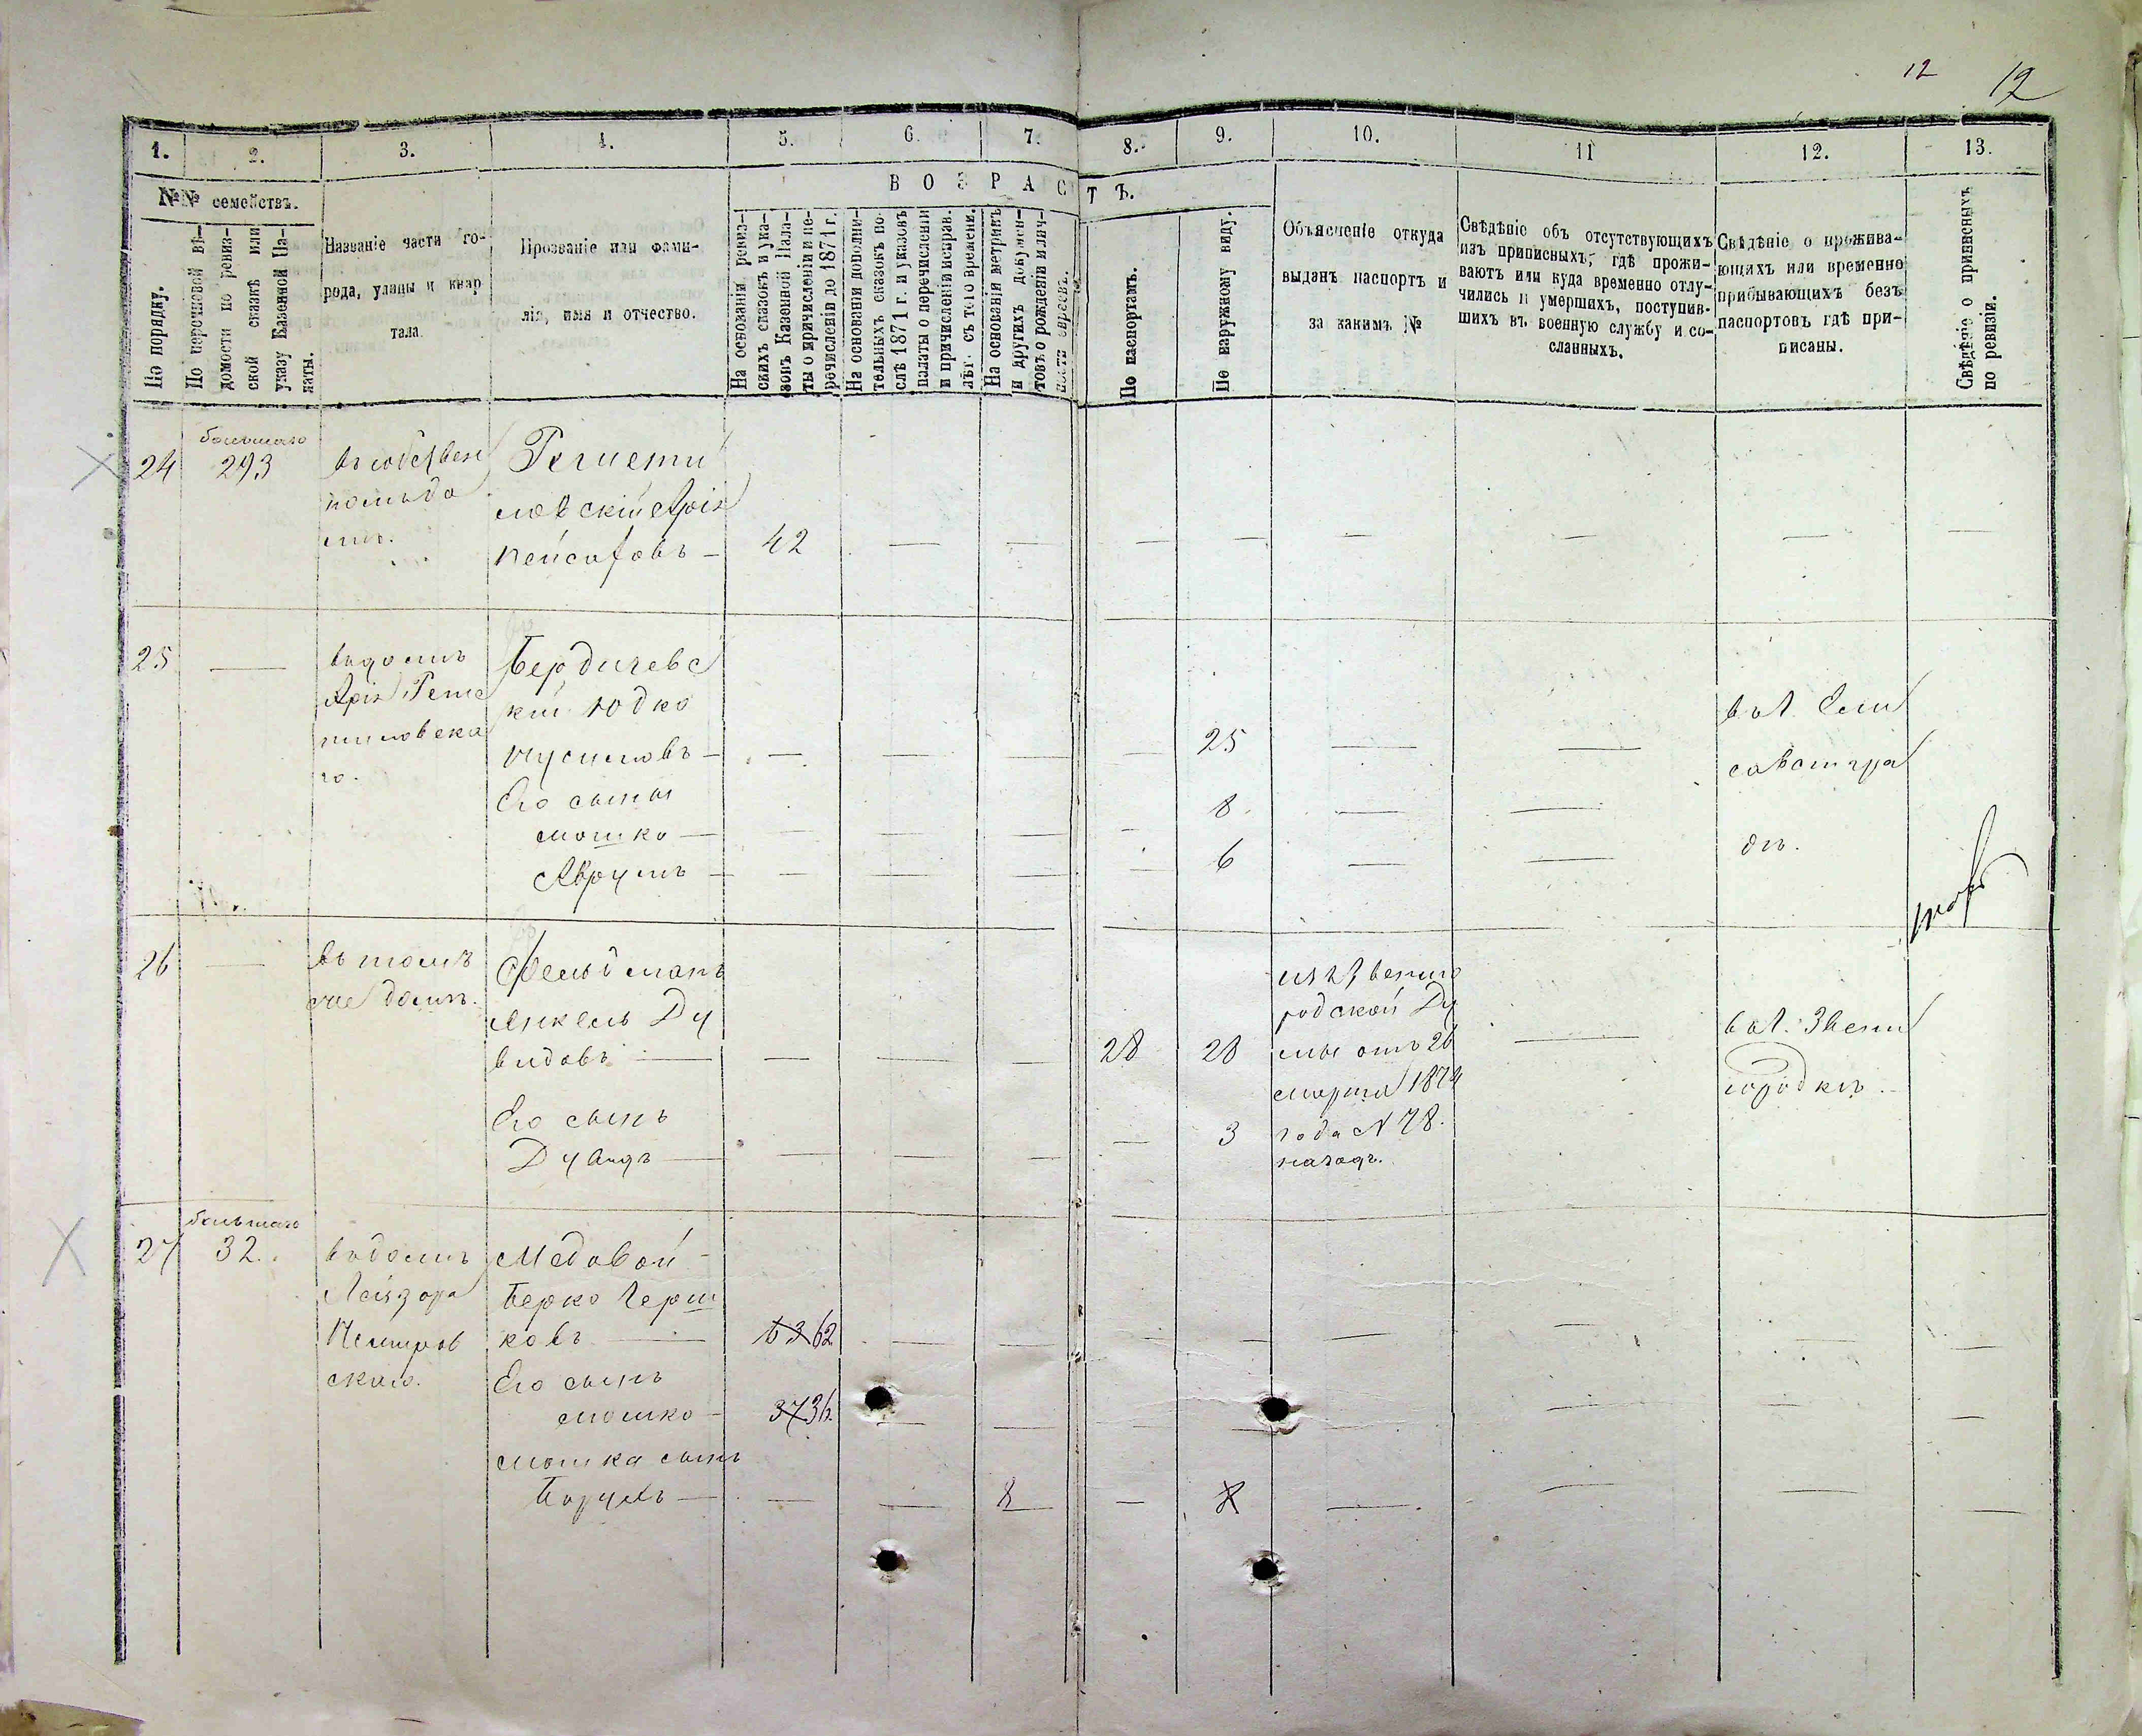 12 12
1. 2. 3. 4. 5. 6. 7. 8. 9. 10. 11 12. 13.
№№ семействъ.
ВОЗРАСТЪ.
По порядку.
По перечневой вѣ-
домости по ревиз-
ской сказкѣ или
указу Казенной Па-
латы.
Названіе части го-
рода, улицы и квар
тала.
Прозваніе или фами-
лія, имя и отчество.
На основаніи ревиз-
скихъ сказокъ и ука-
зовъ Казенной Пала-
ты о причисленіи и пе-
речисленіи до 1871 г.
На основаніи дополни-
тельныхъ сказокъ по-
слѣ 1871 г. и указовъ
палаты о перечисленіи
и причисленіи исправ.
лѣт. съ того времени.
На основаніи метрикъ
и другихъ докумен-
товъ о рожденіи и лич-
ности евреевъ.
По паспортамъ.
По наружному виду.
Объясненіе откуда
выданъ паспортъ и
за какимъ №
Свѣдѣніе объ отсутствующихъ
изъ приписныхъ, гдѣ прожи-
ваютъ или куда временно отлу-
чились и умершихъ, поступив-
шихъ въ военную службу и со-
сланныхъ.
Свѣдѣніе о прожива-
ющихъ или временно
прибывающихъ безъ
паспортовъ гдѣ при-
писаны.
Свѣдѣніе о приписныхъ
по ревизіи.
24
большаго
293
въ собствен
номъ до
мѣ.
ловскій Арія
Пейсаховъ — 42 — — — — — — — —
25 —
въ домѣ
Арія
го.
Бердичевс
кій Юдко
Нусимовъ — — — — — 25 — —
въ г. Ели
саветгра
дѣ.
Его сыны
Мошко — — — — — 8 — —
Аврумъ — — — — — 6 — —
26 —
въ томъ
же домѣ.
Фельдманъ
Янкель Ду
видовъ — — — — 28 28
изъ Звениго
родской Ду
мы отъ 26
марта 1874
года № 78.
—
въ г. Звени
городкѣ.
Его сынъ
Дувидъ — — — — — 3
27
большаго
32.
въ домѣ
Лейзора
Немиров
скаго.
Медовой
Берко Герш
ковъ — 63 62 — — — — — — — —
Его сынъ
Мошко — 37 36 — — — — — — —
Мошка сынъ
Борухъ — — — 8 — 8 — — — —